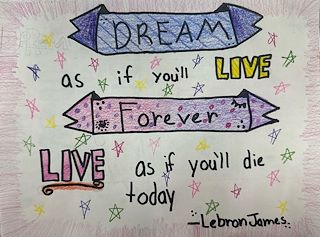 DREAM
as if you'll LIVE
Forever
LIVE as if you'll die
today
—Lebron James